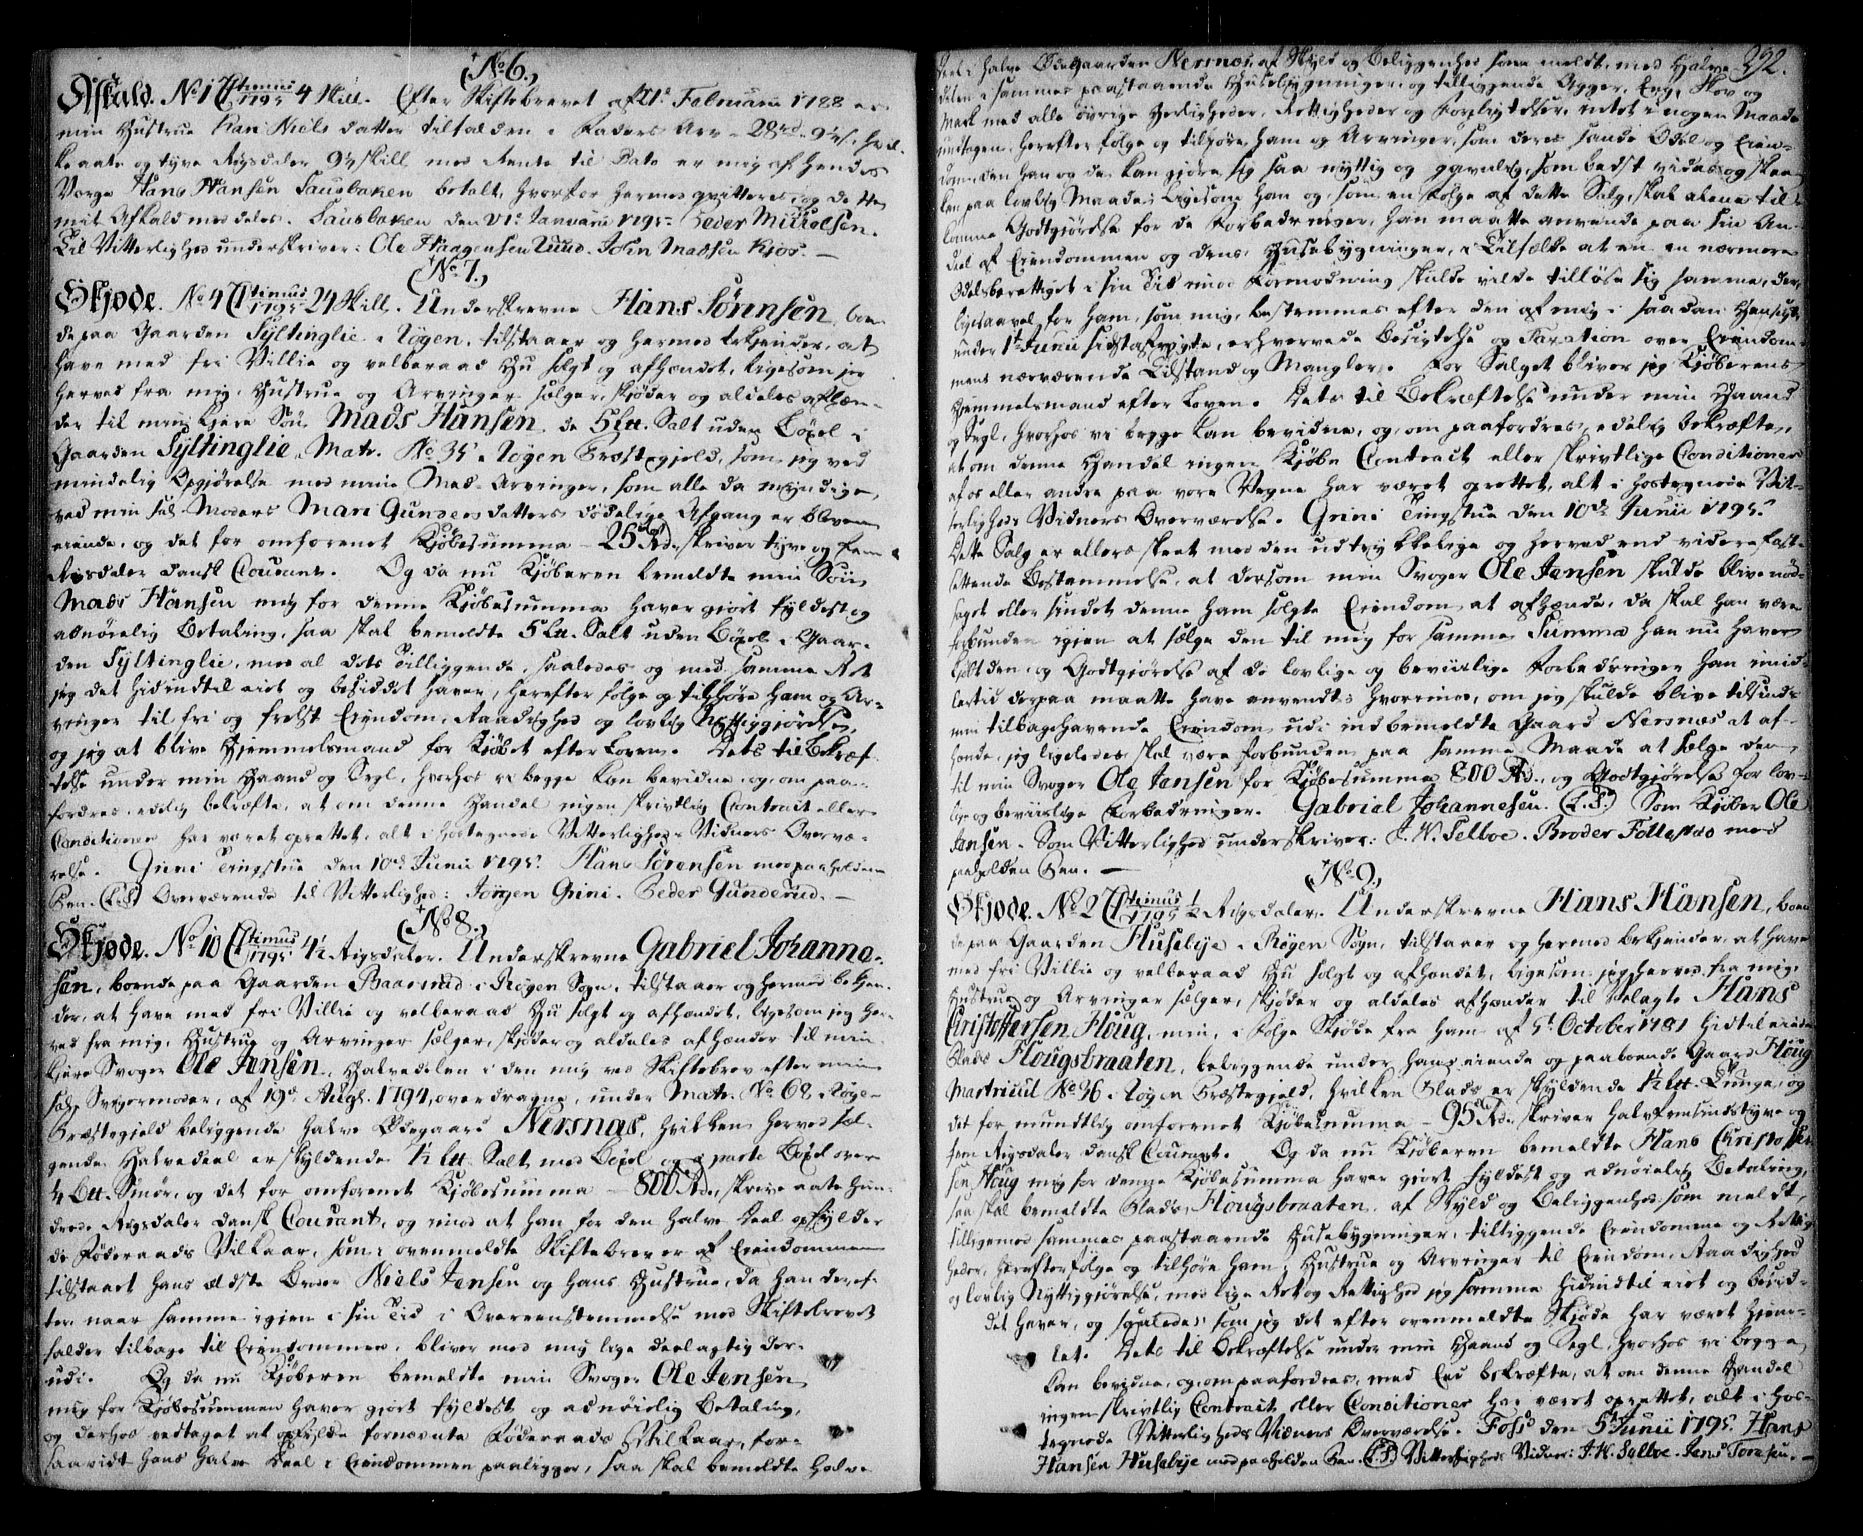 (No 6.)
Afkald. No 1 Ctimus 1795 4 Skill. Efter Skiftebrevet af 21de Februarii 1788 er
min Hustrue Kari Niels datter tilfalden i Faders Arv - 28 rd. 9½ s. hvil-
ke aate og tyve Rigsdaler 9½ skill med Rente til Dato er mig af hendes
Verge Hans Hansen Sausbaken betalt, hvorfor hermed qvitteres, og dette
mit Afkald meddeles. Sausbaken den Januarii 1795. Peder Mickelsen.
Til Vitterlighed underskriver: Ole Haagensen Lund. John Madsen Kjos. —
(No 7.)
Skjøde. No 4 Ctimus 1795 24 Skill. Underskrevne Hans Sørensen, boen-
de paa Gaarden Syltinglie i Røgen, tilstaaer og hermed bekjender, at
have med fri Villie og velberaad Hu solgt og afhændet, ligesom jeg
herved fra mig, Hustrue og Arvinger sælger, skjøder og aldeles afhæn-
der til min kjere Søn Mads Hansen de 5 Lu. Salt uden Bøxel i
Gaarden Syltinglie, Matr. No 35 i Røgen Præstegjeld, som jeg ved
mindelig Opgjørelse med mine Med-Arvinger, som alle da myndige,
ved min sal. Moders Mari Gunders datters dødelige Afgang er bleven
eiende, og det for omforenet Kjøbesumma - 25 Rd. skriver tyve og fem
Rigsdaler dansk Courant. Og da nu Kjøberen bemeldte min Søn
Mads Hansen mig for denne Kjøbesumma haver giort fyldest og
adnøielig Betaling, saa skal bemeldte 5 Lu. Salt uden Bøxel i Gaar-
den Syltinglie, med al dets Tilliggende, saaledes og med samme Ret
jeg det hidindtil eiet og besiddet haver, herefter følge og tilhøre ham og Ar-
vinger til fri og frelst Eiendom, Raadighed og lovlig Nyttiggjørelse,
og jeg at blive Hjemmelsmand for Kjøbet efter Loven. Dets til Bekræf-
telse under min Haand og Segl, hvorhos vi begge kan bevidne, og, om paa-
fordres, edelig bekræfte, at om denne Handel ingen skrivtlig Contract eller
Conditioner har været oprettet, alt i hostegnede Vitterligheds Vidners Overvæ-
relse. Grini Tingstue den 10de Junii 1795. Hans Sørensen med paaholden
Pen. (L.S.) Overværende til Vitterlighed: Jørgen Grini. Peder Gunderud. —
(No 8.)
Skjøde. No 10 Ctimus 1795 4½ Rigsdaler. Underskrevne Gabriel Johanne-
sen, boende paa Gaarden Baarsrud i Røgen Sogn, tilstaaer og hermed bekjen-
der, at have med fri Villie og velberaad Hu solgt og afhændet, ligesom jeg her-
ved fra mig, Hustrue og Arvinger sælger, skjøder og aldeles afhænder til min
kjere Svoger Ole Jensen, Halvedelen i den mig ved Skiftebrev efter min
sal. Svigermoder, af 19de Augt. 1794, overdragne, under Matr. No 68 i Røgens
Præstegjeld beliggende halve Ødegaard Nersnæs, hvilken herved sæl-
gende Halvedeel er skyldende ½ Lu. Salt med Bøxel og parte Bøxel over
4 Lu. Smør, og det for omforenet Kjøbesumma - 800 Rd., skrive aate hun-
drede Rigsdaler dansk Courant, og imod at han for den halve Deel opfylder
de Føderaads Vilkaar, som i ovenmeldte Skiftebrev er af Eiendommen
tilstaaet hans ældste Broder Niels Jensen og hans Hustrue, da han deref-
ter naar samme igjen i sin Tid i Overeensstemmelse med Skiftebrevet
falder tilbage til Eiendommen, bliver med mig lige deelagtig der-
udi. Og da nu Kjøberen bemeldte min Svoger Ole Jensen
mig for Kjøbesummen haver giort fyldest og adnøielig Betaling,
og derhos vedtaget at opfylde fornævnte Føderaads Vilkaar, for-
saavidt hans halve Deel i Eiendommen paaligger, saa skal bemeldte halve
392.
Deel i halve Ødegaarden Nersnæs, af Skyld og Beliggenhed som meldt, med Halve-
delen i sammes paastaaende Huusebygninger, og tilliggende Agger, Eng, Skov og
Mark med alle øvrige Herligheder, Rettigheder og Forlystelser, intet i nogen Maade
undtagen, herefter følge og tilhøre ham og Arvinger, som deres sande Odel og Eien-
dom, den han og de kan gjøre sig saa nyttig og gavnlig, som bedst vides og skee
kan paa lovlig Maade; ligesom han og, som en Følge af dette Salg, skal alene til-
komme Godtgjørelse for de Forbedringer, han maatte anvende paa sin An-
deel af Eiendommen og dens Huusebygninger, i Tilfælde at en nærmere
Odelsberettiget i sin Tid imod Formodning skulde ville tilløse sig samme, der,
ligesaavel for ham, som mig, bestemmes efter den af mig i saadan Hensigt
under 1te Junii sidstafvigte, erhvervede Besigtelse og Taxation over Eiendom-
mens nærværende Tilstand og Mangler. For Salget bliver jeg Kjøberens
Hjemmelsmand efter Loven. Dets til Bekræftelse under min Haand
og Segl, hvorhos vi begge kan bevidne, og, om paafordres, edelig bekræfte,
at om denne Handel ingen Kjøbe Contract eller skrivtlige Conditioner
af os eller andre paa vore Vegne har været oprettet, alt i hostegnede Vit-
terligheds Vidners Overværelse. Grini Tingstue den 10de Junii 1795.
Dette Salg er ellers skeet med den udtrykkelige og herved end videre fast-
settende Bestemmelse, at dersom min Svoger Ole Jensen skulde blive nød-
saget eller sindet denne ham solgte Eiendom at afhænde, da skal han være
forbunden igjen at sælge den til mig for samme Summa han nu haver
kjøbt den, og Godtgjørelse af de lovlige og beviislige Forbedringer han imid-
lertid derpaa maatte have anvendt; hvorimod, om jeg skulde blive tilsinds
min tilbagehavende Eiendom udi indbemeldte Gaard Nersnæs at af-
hænde, jeg ligeledes skal være forbunden paa samme Maade at sælge den
til min Svoger Ole Jensen for Kjøbesumma 800 Rd., og Godtgjørelse for lov-
lige og beviislige Forbedringer. Gabriel Johannesen. (L.S.) Som Kjøber Ole
Jensen. Som Vitterlighed underskriver: J. W. Selboe. Broder Follestad med
paaholden Pen. —
(No 9.)
Skjøde. No 2 Ctimus 1795 ½ Rigsdaler. Underskrevne Hans Hansen, boen-
de paa Gaarden Husebye i Røgen Sogn, tilstaaer og hermed bekjender, at have
med fri Villie og velberaad Hu solgt og afhændet, ligesom jeg herved fra mig,
Hustrue og Arvinger sælger, skjøder og aldeles afhænder til Velagte Hans
Christoffersen Houg, min, i Følge Skjøde fra ham af 5te October 1781 hidtil eiende
Plads Hougsbraaten, beliggende under hans eiende og paaboende Gaard Houg
Matricul No 36 i Røgen Præstegjeld, hvilken Plads er skyldende ½ Lu. Tunge, og
det for mundtlig omforenet Kjøbesumma - 95 Rd. skriver halvfemsindstyve og
fem Rigsdaler dansk Courant. Og da nu Kjøberen bemeldte Hans Christoffer-
sen Houg mig for denne Kjøbesumma haver giort fyldest og adnøielig Betaling,
saa skal bemeldte Plads Hougsbraaten, af Skyld og Beliggenhed som meldt,
tilligemed sammes paastaaende Huusebygninger, tilliggende Eiendomme og Rettig-
heder, herefter følge og tilhøre ham, Hustrue og Arvinger til Eiendom, Raadighed
og lovlig Nyttiggjørelse, med lige Ret og Rettighed jeg samme hidindtil eiet og besid-
det haver, og saaledes som jeg det efter ovenmeldte Skjøde har været hjem-
let. Dets til Bekræftelse under min Haand og Segl, hvorhos vi begge
kan bevidne, og, om paafordres, med Eed bekræfte, at om denne Handel
ingen skrivtlig Contract eller Conditioner har været oprettet, alt i hos-
tegnede Vitterligheds Vidners Overværelse. Foss den 5te Junii 1795. Hans
Hansen Husebye med paaholden Pen. (L.S.) Vitterligheds Vidner: J. W. Selboe. Jens Toresen. —